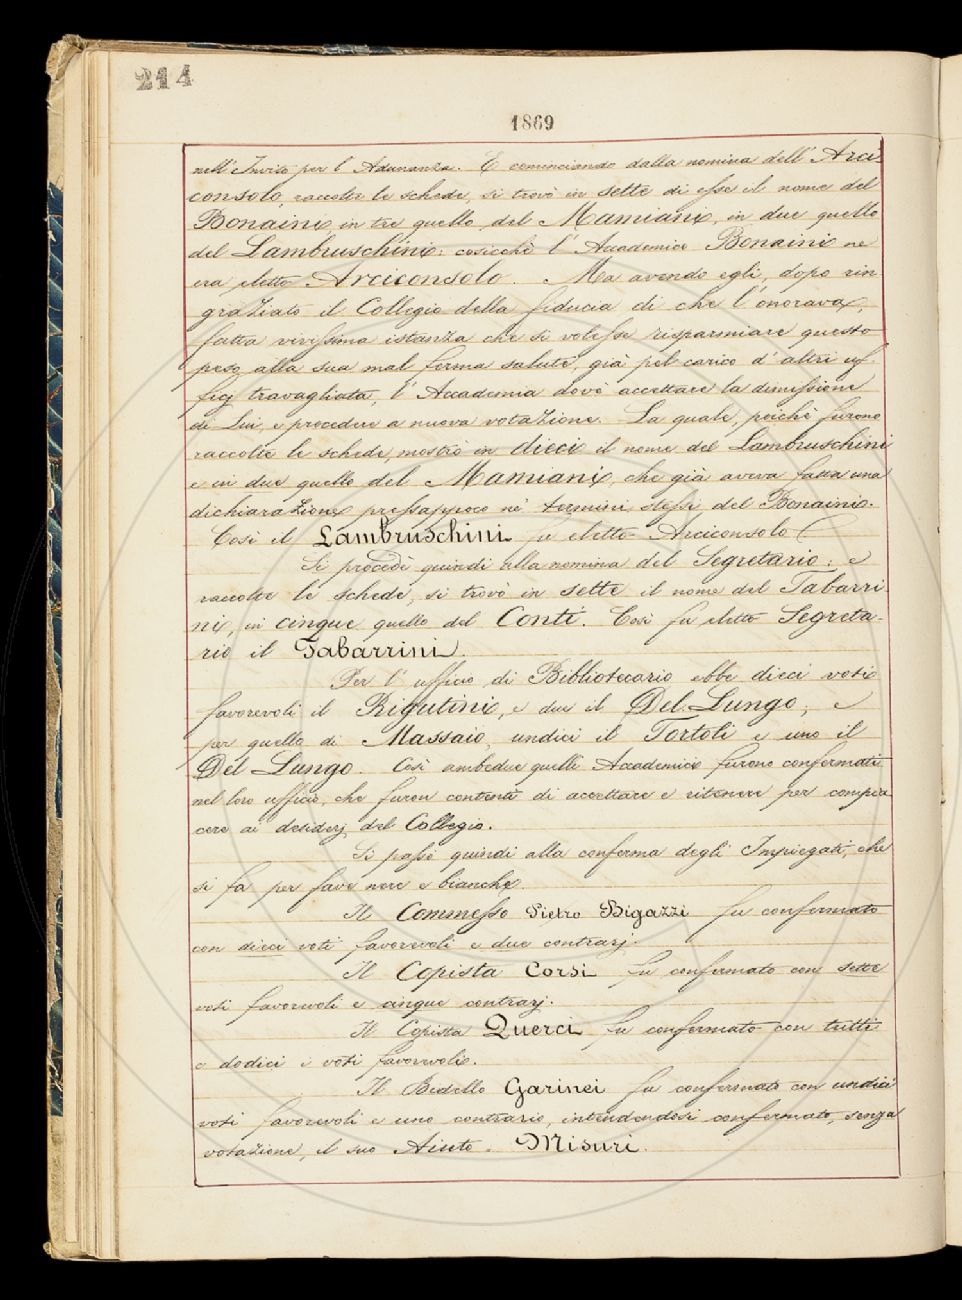 214
1869
nell' Invito per l' Adunanza. E cominciando dalla nomina dell' Arci
consolo, raccolte le schede, si trovò in sette di esse il nome del
Bonaini, in tre quello del Mamiani, in due quello
del Lambruschini: cosicchè l' Accademico Bonaini ne
era eletto Arciconsolo. Ma avendo egli, dopo rin
graziato il Collegio della fiducia di che l' onorava,
fatta vivissima istanza che si volesse risparmiare questo
peso alla sua mal ferma salute, già pel carico d' altri uf
ficj travagliata, l' Accademia dovè accettare la dimissione
di Lui, e procedere a nuova votazione. La quale, poichè furono
raccolte le schede, mostrò in dieci il nome del Lambruschini
e in due quello del Mamiani, che già aveva fatta una
dichiarazione pressappoco ne' termini stessi del Bonaini.
Così il Lambruschini fu eletto Arciconsolo
Si procedè quindi alla nomina del Segretario: e
raccolte le schede, si trovò in sette il nome del Tabarri
ni, in cinque quello del Conti. Così fu eletto Segreta-
rio il Tabarrini.
Per l' ufficio di Bibliotecario ebbe dieci voti
favorevoli il Rigutini, e due il Del Lungo; e
per quello di Massaio, undici il Tortoli e uno il
Del Lungo. Così ambedue quelli Accademici furono confermati
nel loro ufficio, che furon contenti di accettare e ritenere per compia
cere ai desiderj del Collegio.
Si passò quindi alla conferma degli Impiegati, che
si fa per fave nere e bianche.
Il Commesso Pietro Bigazzi fu confermato
con dieci voti favorevoli e due contrarj.
Il Copista Corsi fu confermato con sette
voti favorevoli e cinque contrarj.
Il Copista Querci fu confermato con tutti
e dodici i voti favorevoli.
Il Bidello Garinei fu confermato con undici
voti favorevoli e uno contrario, intendendosi confermato, senza
votazione, il suo Aiuto Misuri.